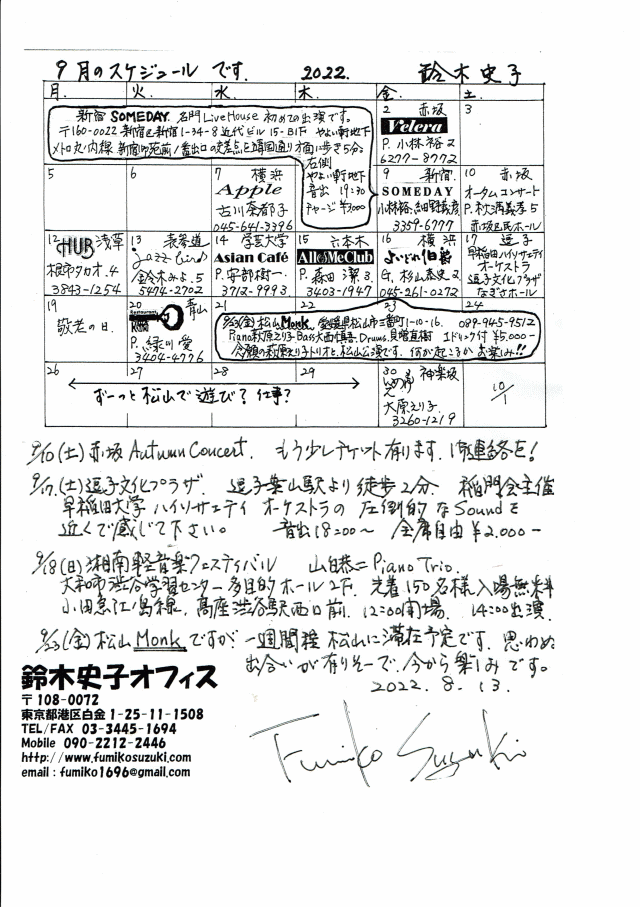 9月のスケジュール です. 2022. 鈴木史子
月. 火. 水. 木. 金. 土.
新宿 SOMEDAY. 名門 LiveHouse 初めての出演です。
〒160-0022 新宿区新宿1-34-8 近代ビル 15-B1F やよい軒地下
メトロ丸ノ内線 新宿御苑前1番出口 交差点を靖国通り方面に歩き5分。
左側
やよい軒地下
音出 19:30
チャージ ¥3,000
2 赤坂
Velera
P. 小林裕 ヌ
6277-8772
3
5
6
7 横浜
Apple
古川奈都子
045-641-3396
9 新宿
SOMEDAY
小林裕. 細野義彦
3359-6777
10 赤坂
オータムコンサート
P. 秋満義孝 5
赤坂区民ホール
12 HUB 浅草
根市タカオ. 4
3843-1254
13 表参道
Jazz Bird
鈴木みよ. 5
5474-2702
14 学芸大学
Asian Café
P. 安部樹一.
3712-9993
15 六本木
All Of Me Club
P. 森田潔 3
3403-1947
16 横浜
よいどれ伯爵
G. 杉山泰史 ヌ
045-261-0272
17 逗子
早稲田ハイソサエティ
オーケストラ
逗子文化プラザ
なぎさホール
19
敬老の日.
20 青山
P. 緑川愛
3404-4776
21
22
23
24
9/23(金) 松山 Monk. 愛媛県松山市三番町1-10-16. 089-945-9512
Piano 萩原えり子 Bass 大西慎吾. Drums. 貝増直樹 1ドリンク付 ¥5,000-
念願の萩原えり子トリオと、松山公演です. 何が起こるかお楽しみ!!
26
27
28
29
ずーっと松山で遊び? 仕事?
30 神楽坂
大原えり子.
3260-1219
10/1
9/10(土) 赤坂 Autumn Concert. もう少しチケット有ります. 御連絡を!
9/17.(土) 逗子文化プラザ. 逗子葉山駅より徒歩2分. 稲門会主催
早稲田大学 ハイソサエティ オーケストラの 圧倒的な Sound を
近くで感じて下さい。 音出 18:00〜 全席自由 ¥2,000-
9/18(日) 湘南軽音楽フェスティバル 山口恭二 Piano Trio.
大和市渋谷学習センター多目的ホール2F. 先着150名様入場無料
小田急江ノ島線. 高座渋谷駅西口前. 12:00開場. 14:00出演.
9/23(金) 松山 Monk ですが 一週間程 松山に滞在予定です. 思わぬ
出合いが有りそーで. 今から楽しみです。
2022. 8. 13.
鈴木史子オフィス
〒108-0072
東京都港区白金 1-25-11-1508
TEL/FAX 03-3445-1694
Mobile 090-2212-2446
http://www.fumikosuzuki.com
email : fumiko1696@gmail.com
Fumiko Suzuki